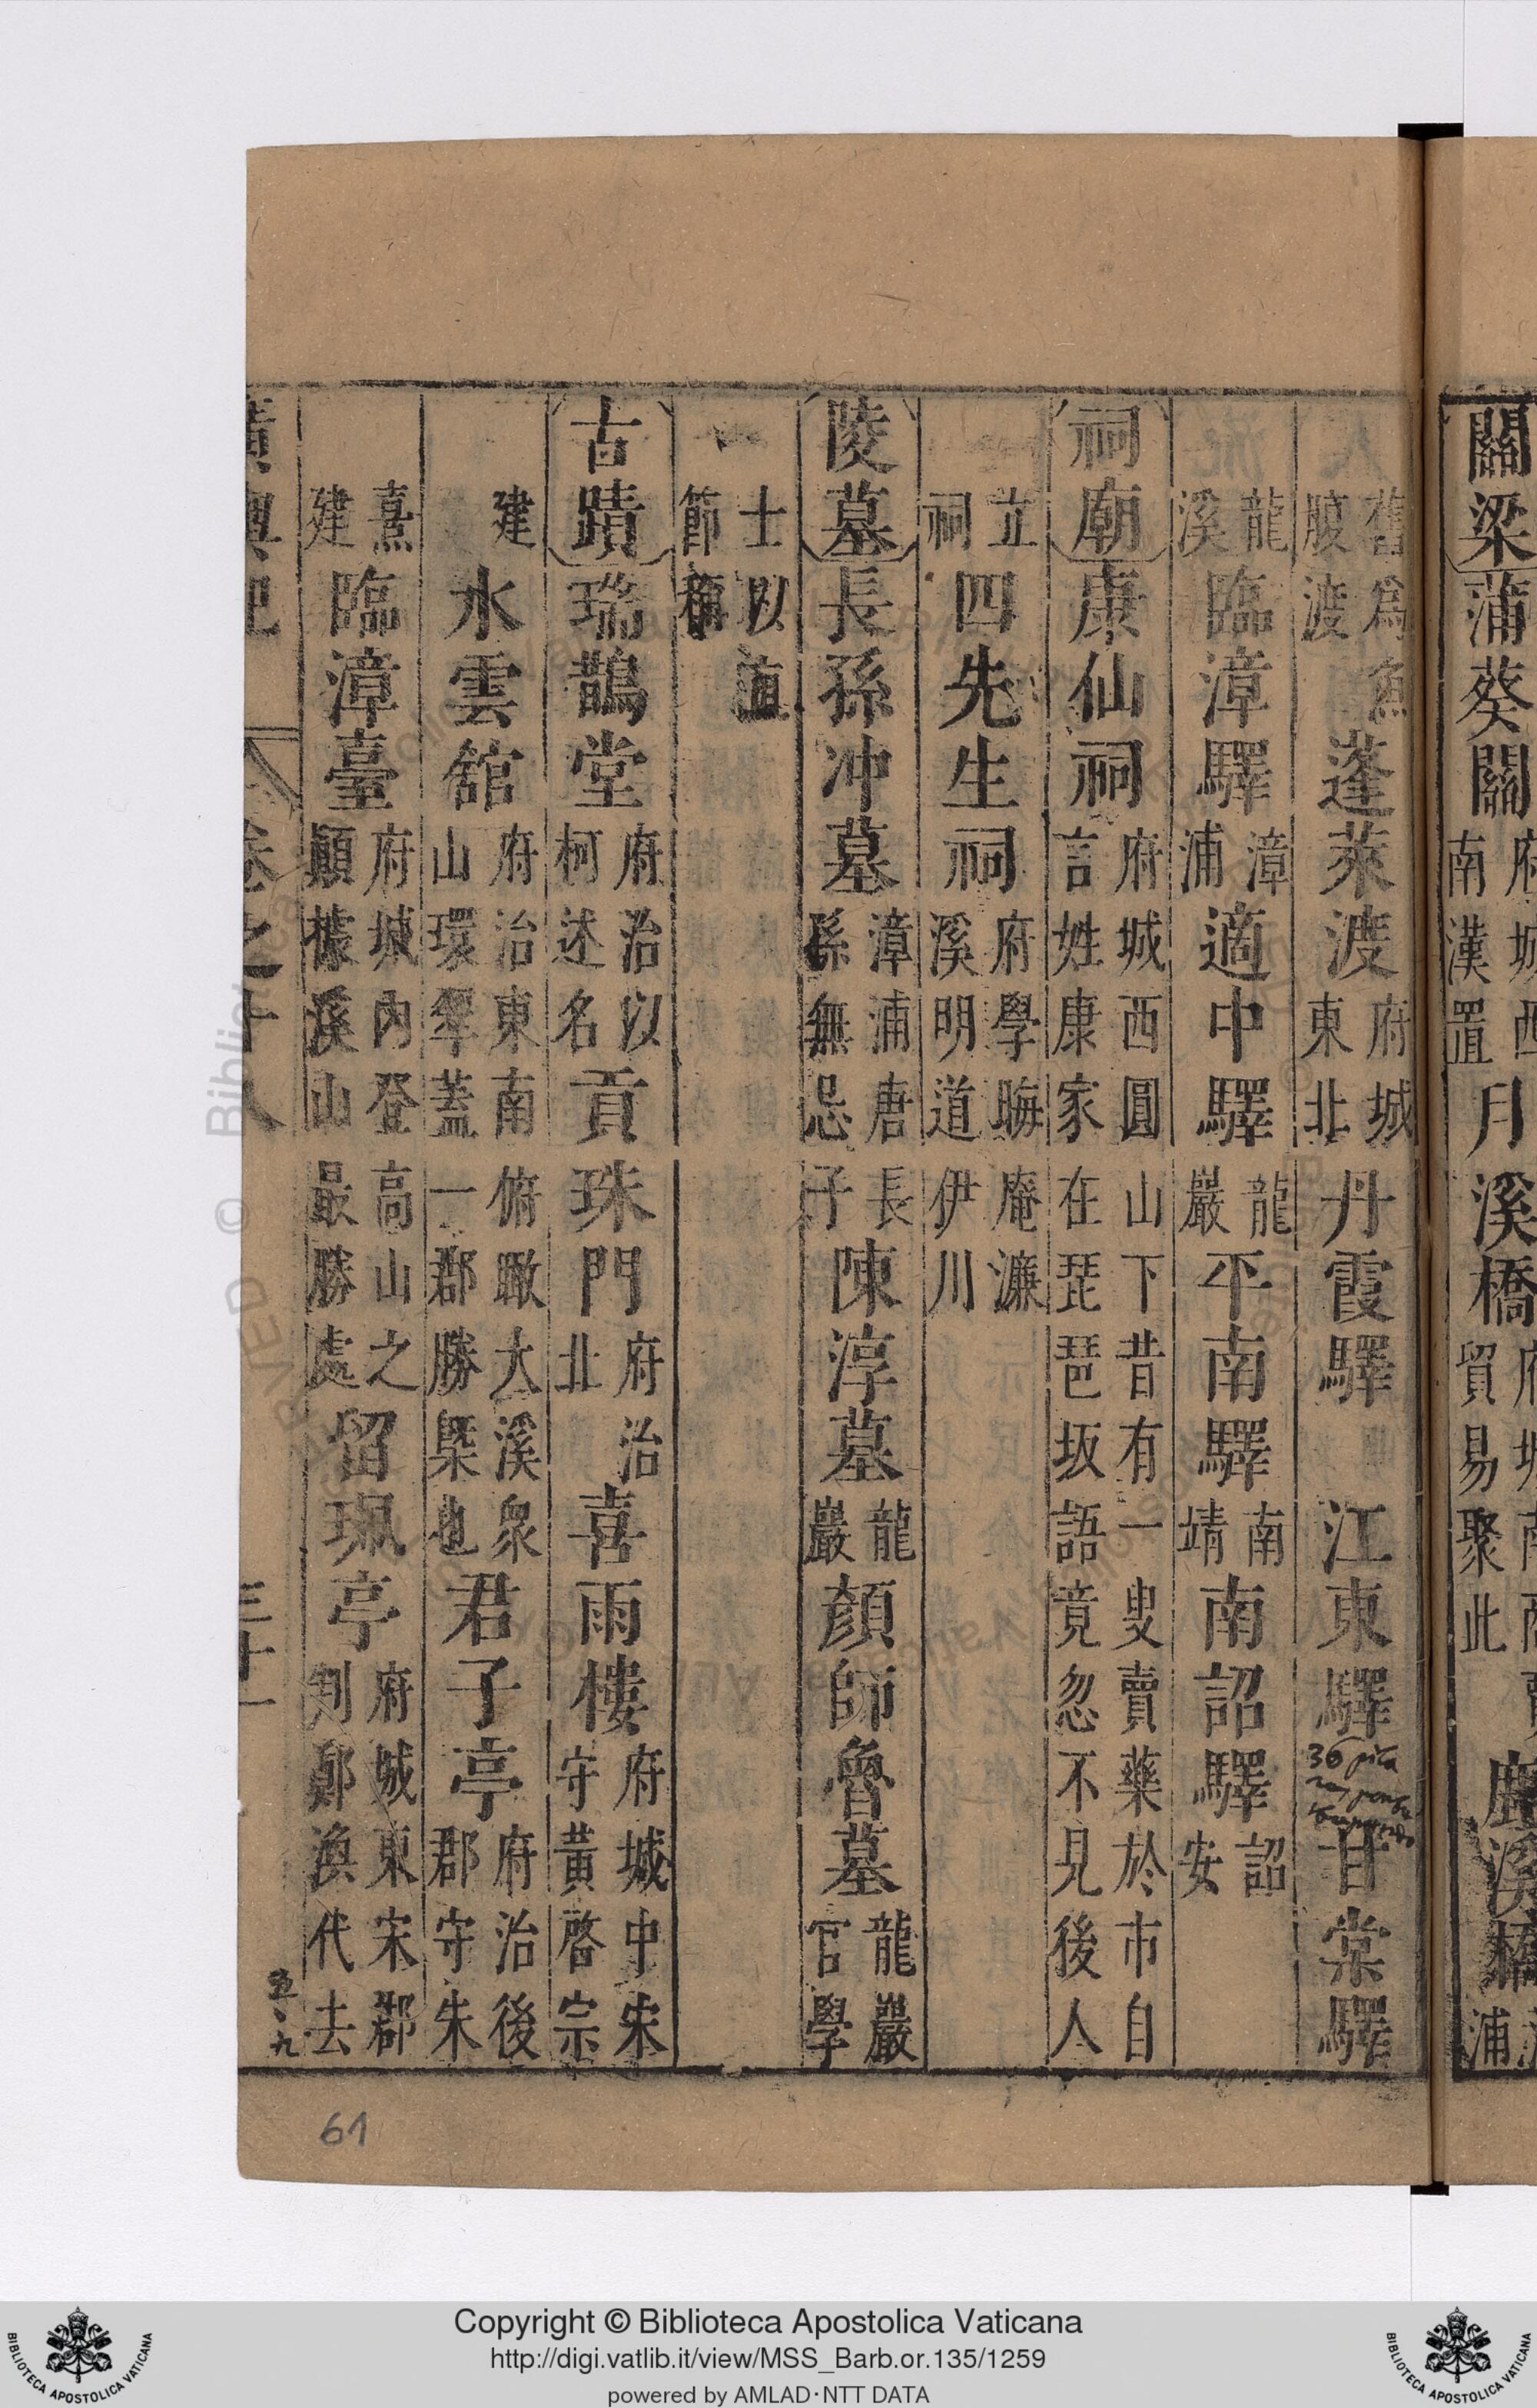 關梁 蒲葵關 府城西南漢置 月溪橋 貿易聚此 鹿溪橋
舊爲魚腹渡 蓬萊渡 府城東北 丹霞驛 江東驛 甘棠驛
龍溪 臨漳驛 漳浦 適中驛 龍巖 平南驛 南靖 南詔驛 詔安
祠廟 康仙祠 府城西圓山下昔有一叟賣藥於市自言姓康家在琵琶坂語竟忽不見後人
立祠 四先生祠 府學晦庵濂溪明道伊川
陵墓 長孫冲墓 漳浦唐長孫無忌子 陳淳墓 龍巖 顏師魯墓 龍巖官學
士以道節稱
古蹟 瑞鵲堂 府治以柯述名 貢珠門 府治北 喜雨樓 府城中宋守黃啓宗
建 水雲館 府治東南俯瞰大溪眾山環翠蓋一郡勝槩也 君子亭 府治後郡守朱
熹建 臨漳臺 府城內登高山之顛據溪山最勝處 留珮亭 府城東宋郡判鄭渙代去
廣輿記 卷之十八 三十一
61
Copyright © Biblioteca Apostolica Vaticana
http://digi.vatlib.it/view/MSS_Barb.or.135/1259
powered by AMLAD·NTT DATA
BIBLIOTECA APOSTOLICA VATICANA
BIBLIOTECA APOSTOLICA VATICANA